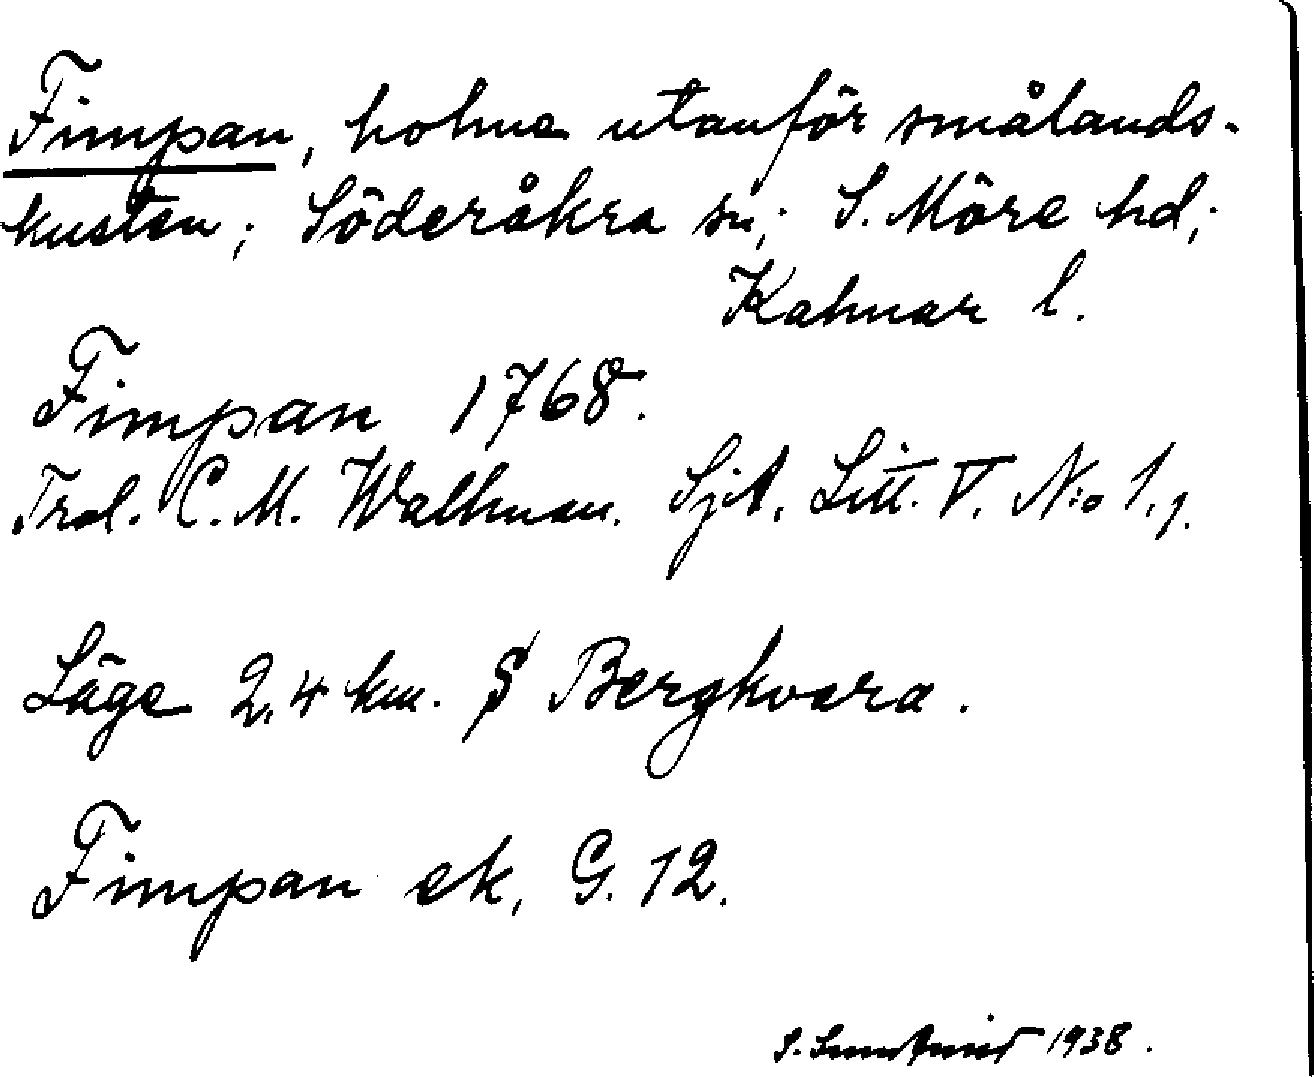 Fimpan, holme utanför smålands-
kusten; Söderåkra sn; S. Möre hd;
Kalmar l.
Fimpan 1768.
Trol. C. M. Wallman. Sjk. Litt. V. N:o 1,1.
Läge 2,4 km. S Bergkvara.
Fimpan ek, G. 12.
S. 1938.